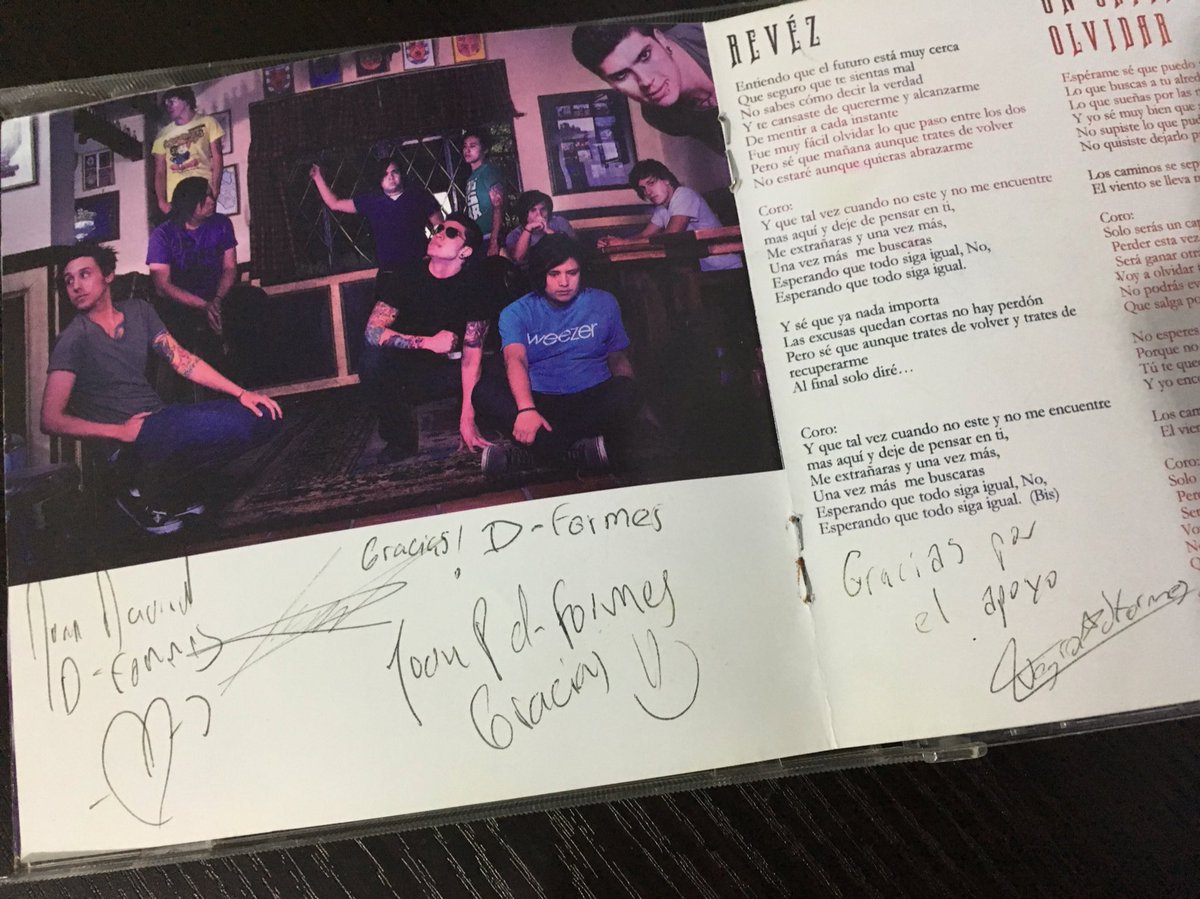 weezer
Gracias! D-Formes
Juan David
D-Formes
Joan P d-Formes
Gracias
REVÉZ
Entiendo que el futuro está muy cerca
Que seguro que te sientas mal
No sabes cómo decir la verdad
Y te cansaste de quererme y alcanzarme
De mentir a cada instante
Fue muy fácil olvidar lo que paso entre los dos
Pero sé que mañana aunque trates de volver
No estaré aunque quieras abrazarme
Coro:
Y que tal vez cuando no este y no me encuentre
mas aquí y deje de pensar en ti,
Me extrañaras y una vez más,
Una vez más me buscaras
Esperando que todo siga igual, No,
Esperando que todo siga igual.
Y sé que ya nada importa
Las excusas quedan cortas no hay perdón
Pero sé que aunque trates de volver y trates de
recuperarme
Al final solo diré...
Coro:
Y que tal vez cuando no este y no me encuentre
mas aquí y deje de pensar en ti,
Me extrañaras y una vez más,
Una vez más me buscaras
Esperando que todo siga igual, No,
Esperando que todo siga igual. (Bis)
Gracias por
el apoyo
OLVIDAR
Espérame sé que puedo
Lo que buscas a tu
Lo que sueñas por las
Y yo sé muy bien que
No supiste lo que
No quisiste dejarlo
Los caminos se
El viento se lleva
Coro:
Solo serás un
Perder esta vez
Será ganar
Voy a olvidar
No podrás
Que salga
No
Porque no
Tú te
Y yo
Los
El
Coro:
Solo